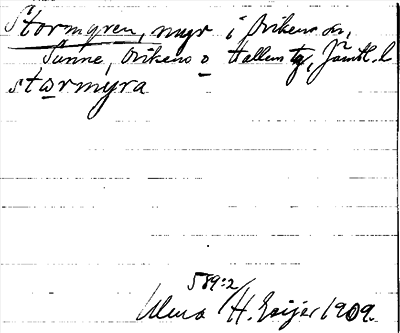 Stormyren, myr i Ovikens sn,
Sunne, Ovikens o Hallens tg, Jämtl. l
stormyra
589:2
Ulma / H. Geijer 1909.